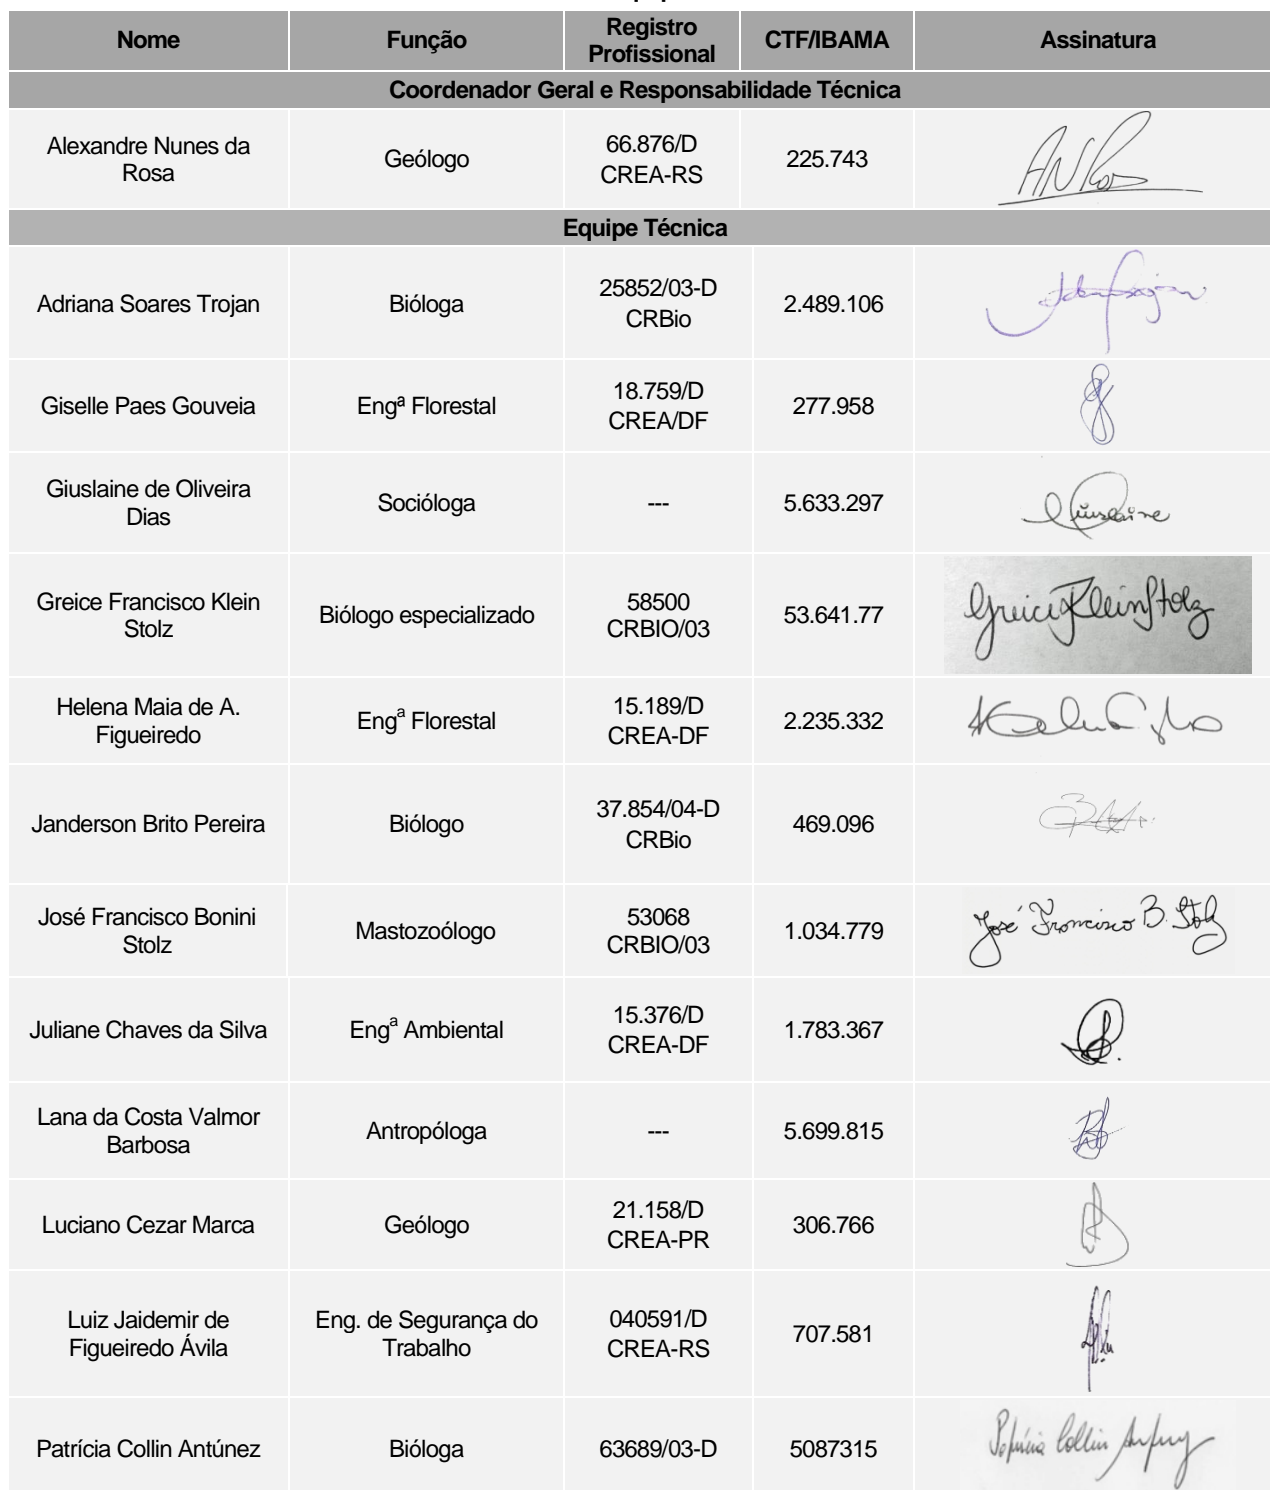 Nome
Função
Registro
Profissional
CTF/IBAMA
Assinatura
Coordenador Geral e Responsabilidade Técnica
Alexandre Nunes da
Rosa
Geólogo
66.876/D
CREA-RS
225.743
Equipe Técnica
Adriana Soares Trojan
Bióloga
25852/03-D
CRBio
2.489.106
Giselle Paes Gouveia
Engª Florestal
18.759/D
CREA/DF
277.958
Giuslaine de Oliveira
Dias
Socióloga
---
5.633.297
Giuslaine
Greice Francisco Klein
Stolz
Biólogo especializado
58500
CRBIO/03
53.641.77
Greice Klein Stolz
Helena Maia de A.
Figueiredo
Engª Florestal
15.189/D
CREA-DF
2.235.332
Janderson Brito Pereira
Biólogo
37.854/04-D
CRBio
469.096
José Francisco Bonini
Stolz
Mastozoólogo
53068
CRBIO/03
1.034.779
José Francisco B. Stolz
Juliane Chaves da Silva
Engª Ambiental
15.376/D
CREA-DF
1.783.367
Lana da Costa Valmor
Barbosa
Antropóloga
---
5.699.815
Luciano Cezar Marca
Geólogo
21.158/D
CREA-PR
306.766
Luiz Jaidemir de
Figueiredo Ávila
Eng. de Segurança do
Trabalho
040591/D
CREA-RS
707.581
Patrícia Collin Antúnez
Bióloga
63689/03-D
5087315
Patrícia Collin Antúnez